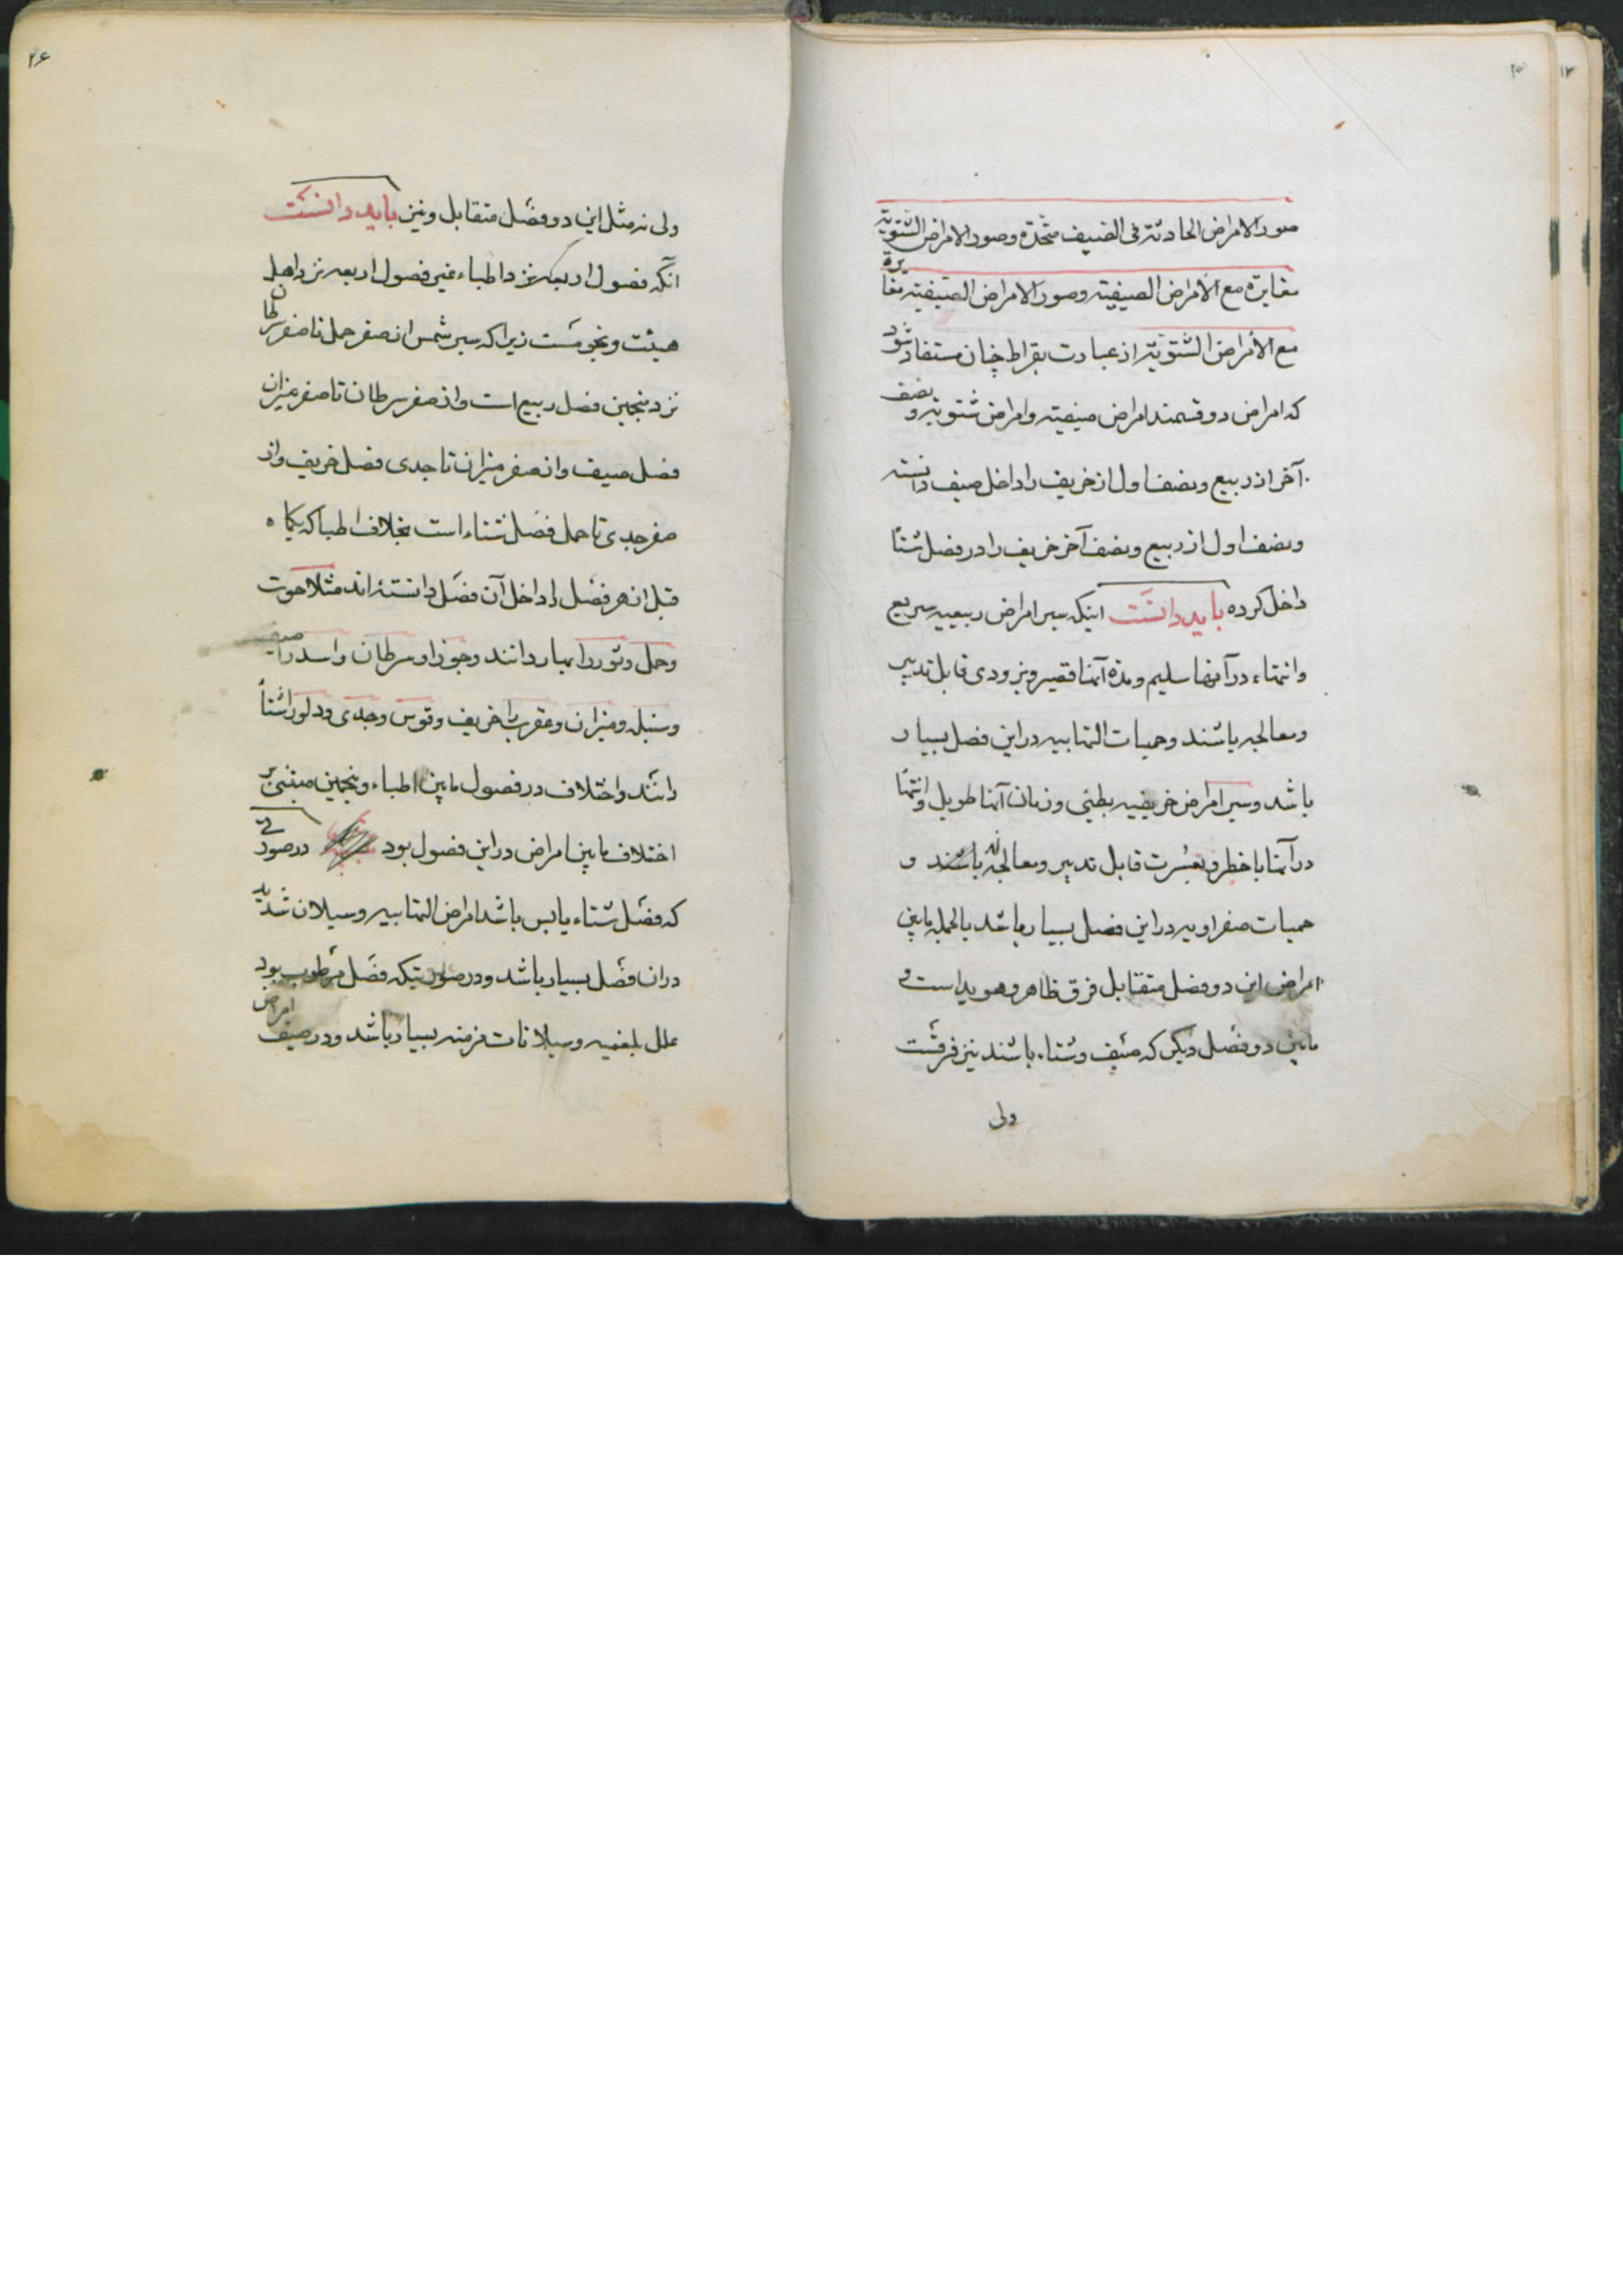 ۲۵
صور الامراض الحادثة فی الصیف متحدة و صور الامراض الشتویة
مغایرة مع الامراض الصیفیته و صور الامراض الصیفیته مغایرة
مع الامراض الشتویة از عبارت بقراط چنان مستفاد شود
که امراض دو قسمند امراض صیفیته و امراض شتویته و نصف
آخر از ربیع و نصف اول از خریف را داخل صیف دانسته
و نصف اول از ربیع و نصف آخر خریف را در فصل شتأ
داخل کرده باید دانست اینکه سیر امراض ربیعیه سریع
و انتهاء در آنها سلیم و مدة آنها قصیر و بزودی قابل تدبیر
و معالجه باشند و حمیات التهابیه در این فصل بسیار
باشد و سیر امراض خریفیه بطئی و زمان آنها طویل و انتها
در آنها با خطر و بعسرت قابل تدبیر و معالجه باشند و
حمیات صفراویه در این فصل بسیار باشد بالجمله مابین
امراض این دو فصل متقابل فرق ظاهر و هویداست و
مابین دو فصل دیگر که صیف و شتاء باشند نیز فرقست
ولی
۲۶
ولی نه مثل این دو فصل متقابل و نیز باید دانست
آنکه فصول اربعه نزد اطباء غیر فصول اربعه نزد اهل
هیئت و نجومست زیرا که سیر شمس از صفر حمل تا صفر سرطان
نزد منجمین فصل ربیع است و از صفر سرطان تا صفر میزان
فصل صیف و از صفر میزان تا جدی فصل خریف و از
صفر جدی تا حمل فصل شتاء است بخلاف اطبا که یکماه
قبل از هر فصل را داخل آن فصل دانسته‌اند مثلا حوت
و حمل و ثور را بهار دانند و جوزا و سرطان و اسد را صیف
و سنبله و میزان و عقرب را خریف و قوس و جدی و دلو را شتأ
دانند و اختلاف در فصول مابین اطباء و منجمین مبتنی بر
اختلاف مابین امراض در این فصول بود در صورتی
که فصل شتاء یابس باشد امراض التهابیه و سیلان شدید
دران فصل بسیار باشد و در صورتیکه فصل مرطوب بود
علل بلغمیه و سیلانات مزمنه بسیار باشد و در صیف امراض